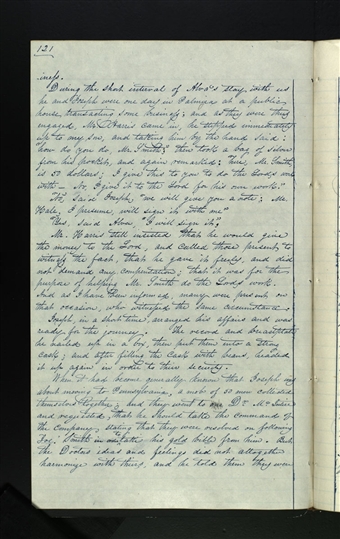 121
iness.
During the short interval of Alva's stay with us
he and Joseph were one day in Palmyra at a public
house transacting some business; and as they were thus
engaged, Mr. Harris came in, he stepped immediately
up to my son, and taking him by the hand said:
"how do you do, Mr. Smith," then took a bag of silver
from his pocket, and again remarked: "here, Mr. Smith,
is 50 dollars; I give this to you to do the Lord's work
with— No, I give it to the Lord for his own work."
"No," said Joseph, "we will give you a note; Mr.
Hale, I presume, will sign it with me"
"Yes," said Alva, "I will sign it."
Mr. Harris still insisted that he would give
the money to the Lord, and called those present to
witness the fact, that he gave it freely, and did
not demand any compensation; that it was for the
purpose of helping Mr. Smith do the Lord's work.
And as I have been informed, many were present on
that occasion, who witnessed the same circumstance
Joseph, in a short time, arranged his affairs and was
ready for the journey. The record and breastplate
he nailed up in a box, then put them into a strong
cask; and after filling the cask with beans, headed
it up again in order to their security.
When it had become generally known that Joseph was
about moving to Pennsylvania, a mob of 50 men collected
themselves together; and they went to one Dr. McIntire
and requested, that he should take the command of
the company, stating that they were resolved on following
Joe. Smith and take his gold bible from him. But
the Doctors ideas and feelings did not altogether
harmonize with theirs, and he told them they were